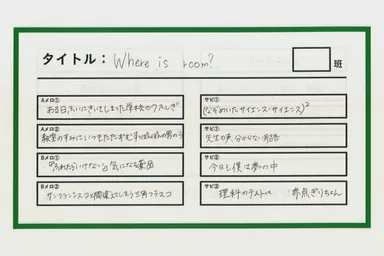 タイトル： Where is room?
班
Aメロ①
ある日、ふいにきいてしまった学校のウワサ
Aメロ②
教室のすみにいつもたたずむ 男の子
Bメロ①
「ふれたらいけない」気になる薬品
Bメロ②
サンフランシスコと間違えてしまう三角フラスコ
サビ①
(なぞめいたサイエンス・サイエンス)²
サビ①
先生の声、分からない用語
サビ②
今日も僕は夢の中
サビ②
理科のテストは 赤点ぎりちょん